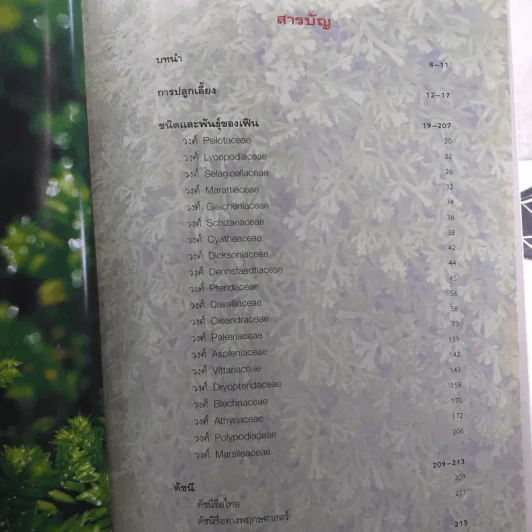 สารบัญ
บทนำ 8-11
การปลูกเลี้ยง 12-17
ชนิดและพันธุ์ของเฟิน 19-207
วงศ์ Psilotaceae 20
วงศ์ Lycopodiaceae 22
วงศ์ Selaginellaceae 26
วงศ์ Marattieaceae 32
วงศ์ Gleicheniaceae 34
วงศ์ Schizaeaceae 36
วงศ์ Cyatheaceae 38
วงศ์ Dicksoniaceae 42
วงศ์ Dennstaedtiaceae 44
วงศ์ Pteridaceae 45
วงศ์ Davalliaceae 56
วงศ์ Oleandraceae 58
วงศ์ Pakeriaceae 73
วงศ์ Aspleniaceae 139
วงศ์ Vittariaceae 142
วงศ์ Dryopteridaceae 143
วงศ์ Blechnaceae 158
วงศ์ Athyriaceae 170
วงศ์ Polypodiaceae 172
วงศ์ Marsileaceae 206
ดัชนี 209-213
ดัชนีชื่อไทย 209
ดัชนีชื่อทางพฤกษศาสตร์ 211
215